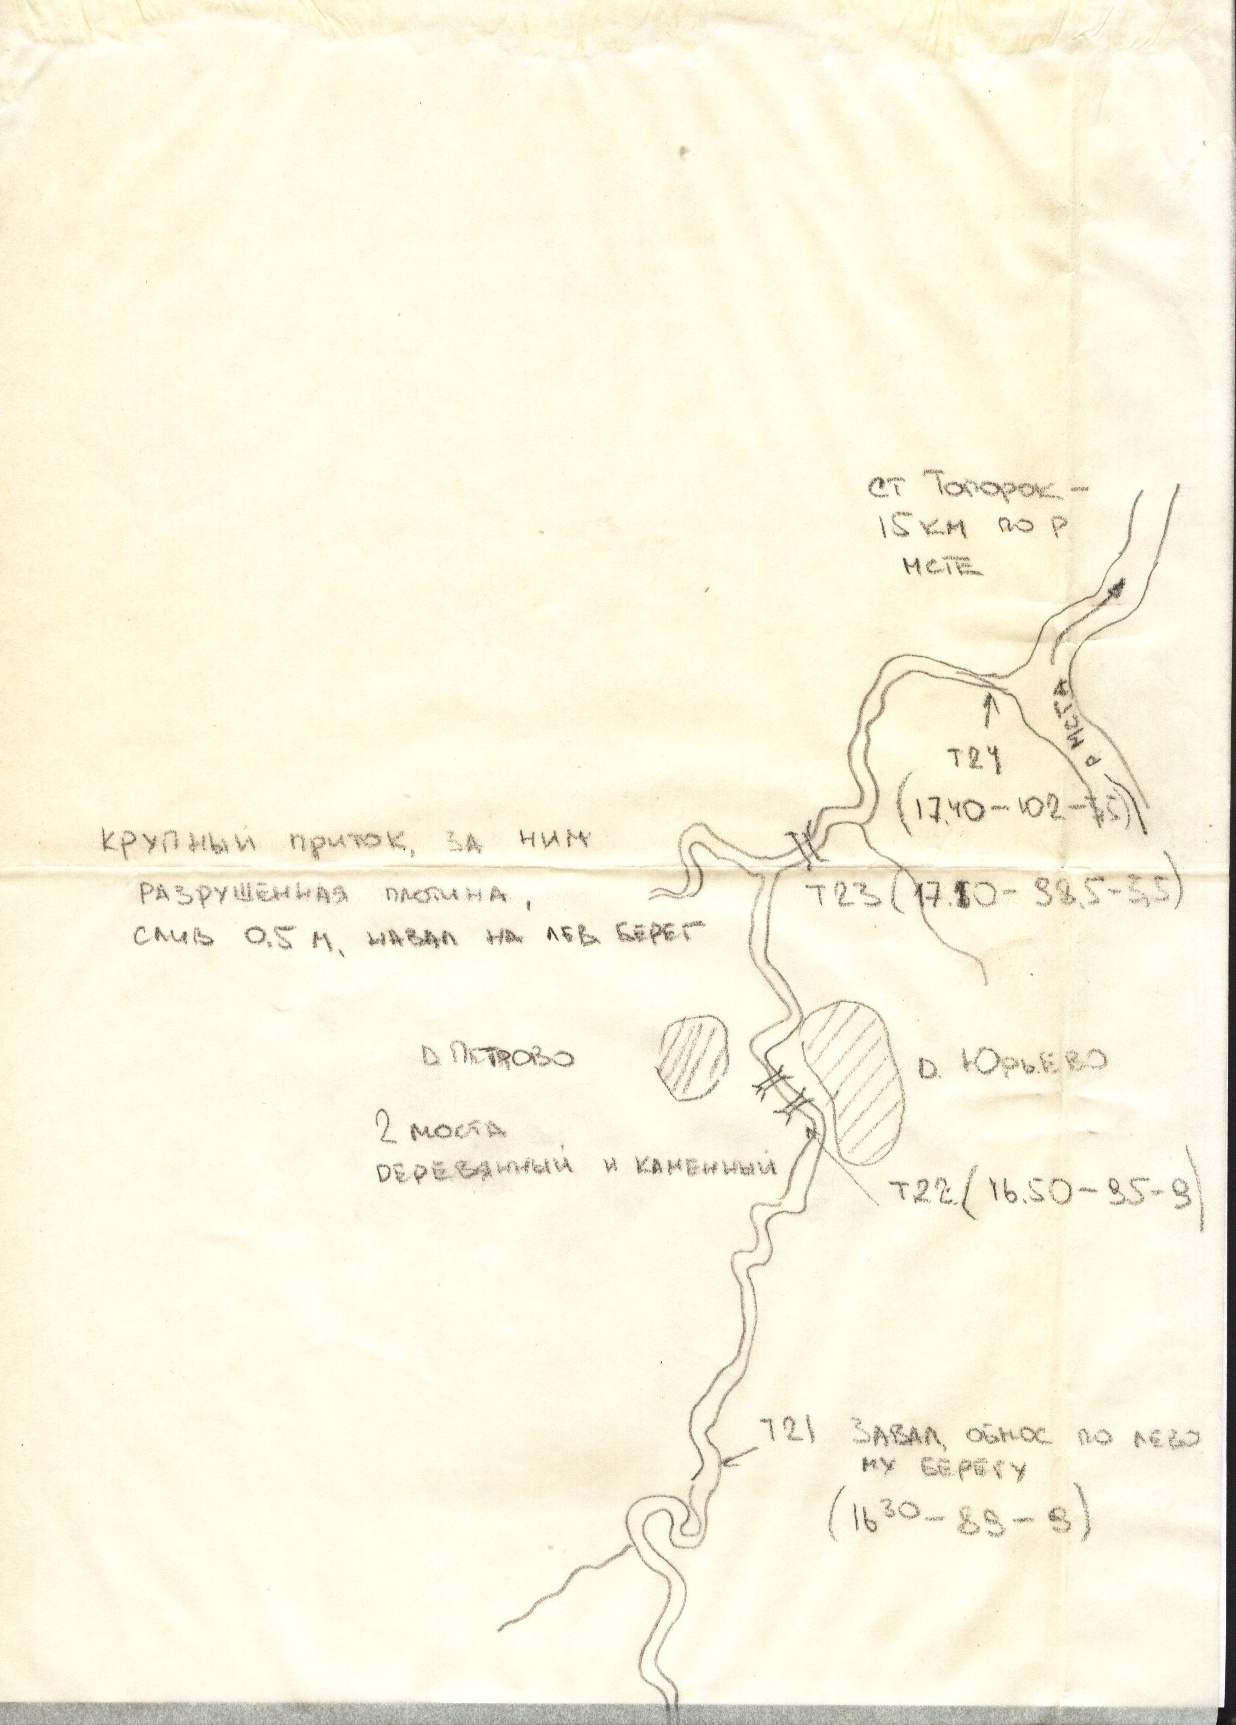 СТ ТОПОРОК –
15 КМ ПО Р
МСТЕ
Р МСТА
Т24
(17.40 – 102 – 7,5)
КРУПНЫЙ ПРИТОК, ЗА НИМ
РАЗРУШЕННАЯ ПЛОТИНА,
СЛИВ 0.5 М, НАВАЛ НА ЛЕВ. БЕРЕГ
Т23 (17.10 – 98,5 – 3,5)
Д. ПЕТРОВО
Д. ЮРЬЕВО
2 МОСТА
ДЕРЕВЯННЫЙ И КАМЕННЫЙ
Т22 (16.50 – 95 – 9)
Т21 ЗАВАЛ, ОБНОС ПО ЛЕВО
МУ БЕРЕГУ
(16 30 – 89 – 9)